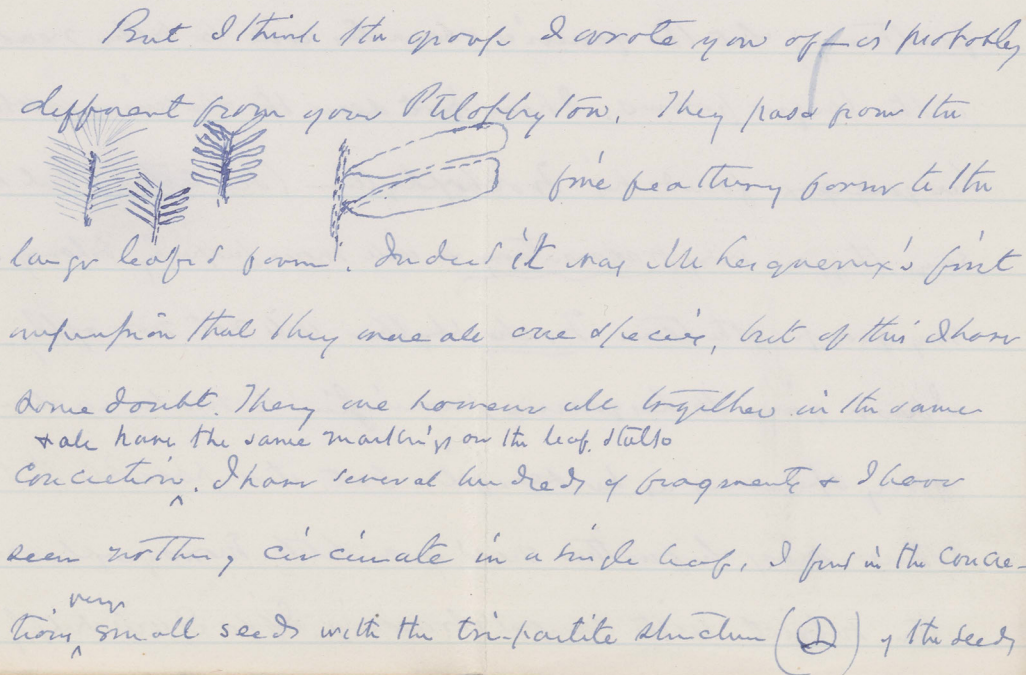 But I think the group I wrote you of is probably
different from your Ptilophyton. They pass from the
fine feathery forms to the
large leafed form. Indeed it was Mr Lesquereux's first
impression that they were all one species, but of this I have
some doubt. They are however all together in the same
& all have the same markings on the leaf stalks
concretion. I have several hundreds of fragments & I have
seen nothing circinate in a single leaf. I find in the concre-
very
tions small seeds with the tripartite structure ( ) of the seeds